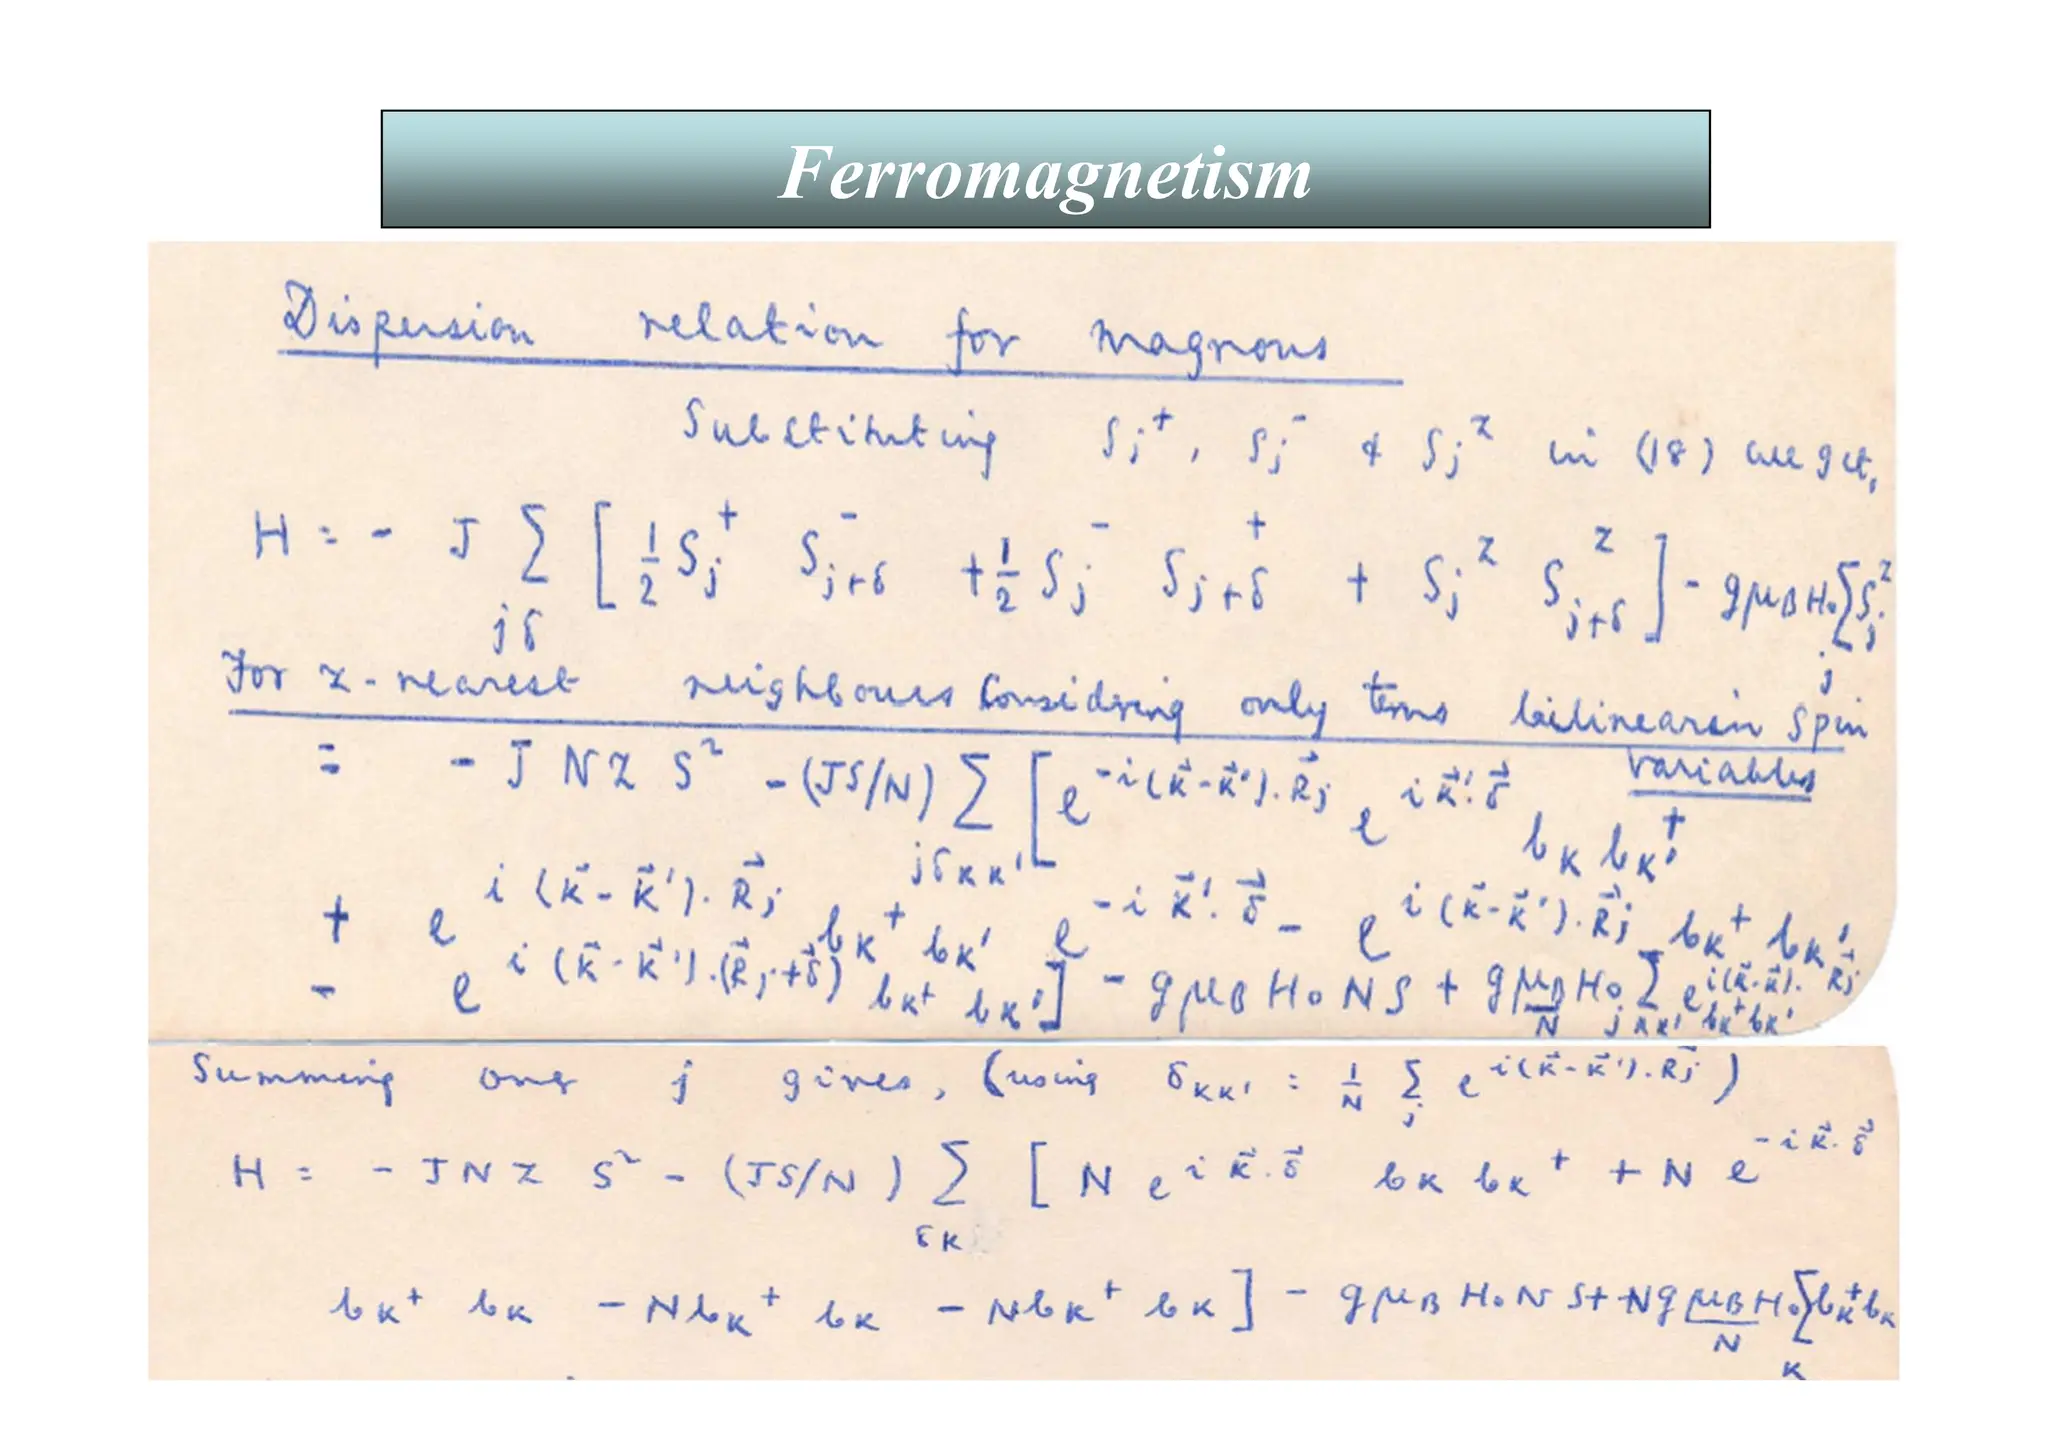 Ferromagnetism
Dispersion relation for magnons
Substituting Sj⁺, Sj⁻ & Sj^z in (18) we get,
H = - J Σ_{jδ} [ ½ Sj⁺ S⁻_{j+δ} + ½ Sj⁻ S⁺_{j+δ} + Sj^z S^z_{j+δ} ] - gμ_B H₀ Σ_j Sj^z
For z-nearest neighbours Considering only terms bilinear in spin
variables
= - J N z S² - (JS/N) Σ_{jδKK'} [ e^{-i(K⃗-K⃗')·R⃗j} e^{iK⃗'·δ⃗} b_K b_K'⁺
+ e^{i(K⃗-K⃗')·R⃗j} b_K⁺ b_K' e^{-iK⃗'·δ⃗} - e^{i(K⃗-K⃗')·R⃗j} b_K⁺ b_K'
- e^{i(K⃗-K⃗')·(R⃗j+δ⃗)} b_K⁺ b_K' ] - gμ_B H₀ N S + gμ_B H₀/N Σ_{jKK'} e^{i(K⃗-K⃗')·R⃗j} b_K⁺ b_K'
Summing over j gives, (using δ_KK' = 1/N Σ_j e^{i(K⃗-K⃗')·R⃗j})
H = - J N z S² - (JS/N) Σ_{δK} [ N e^{iK⃗·δ⃗} b_K b_K⁺ + N e^{-iK⃗·δ⃗}
b_K⁺ b_K - N b_K⁺ b_K - N b_K⁺ b_K ] - gμ_B H₀ N S + N gμ_B H₀/N Σ_K b_K⁺ b_K